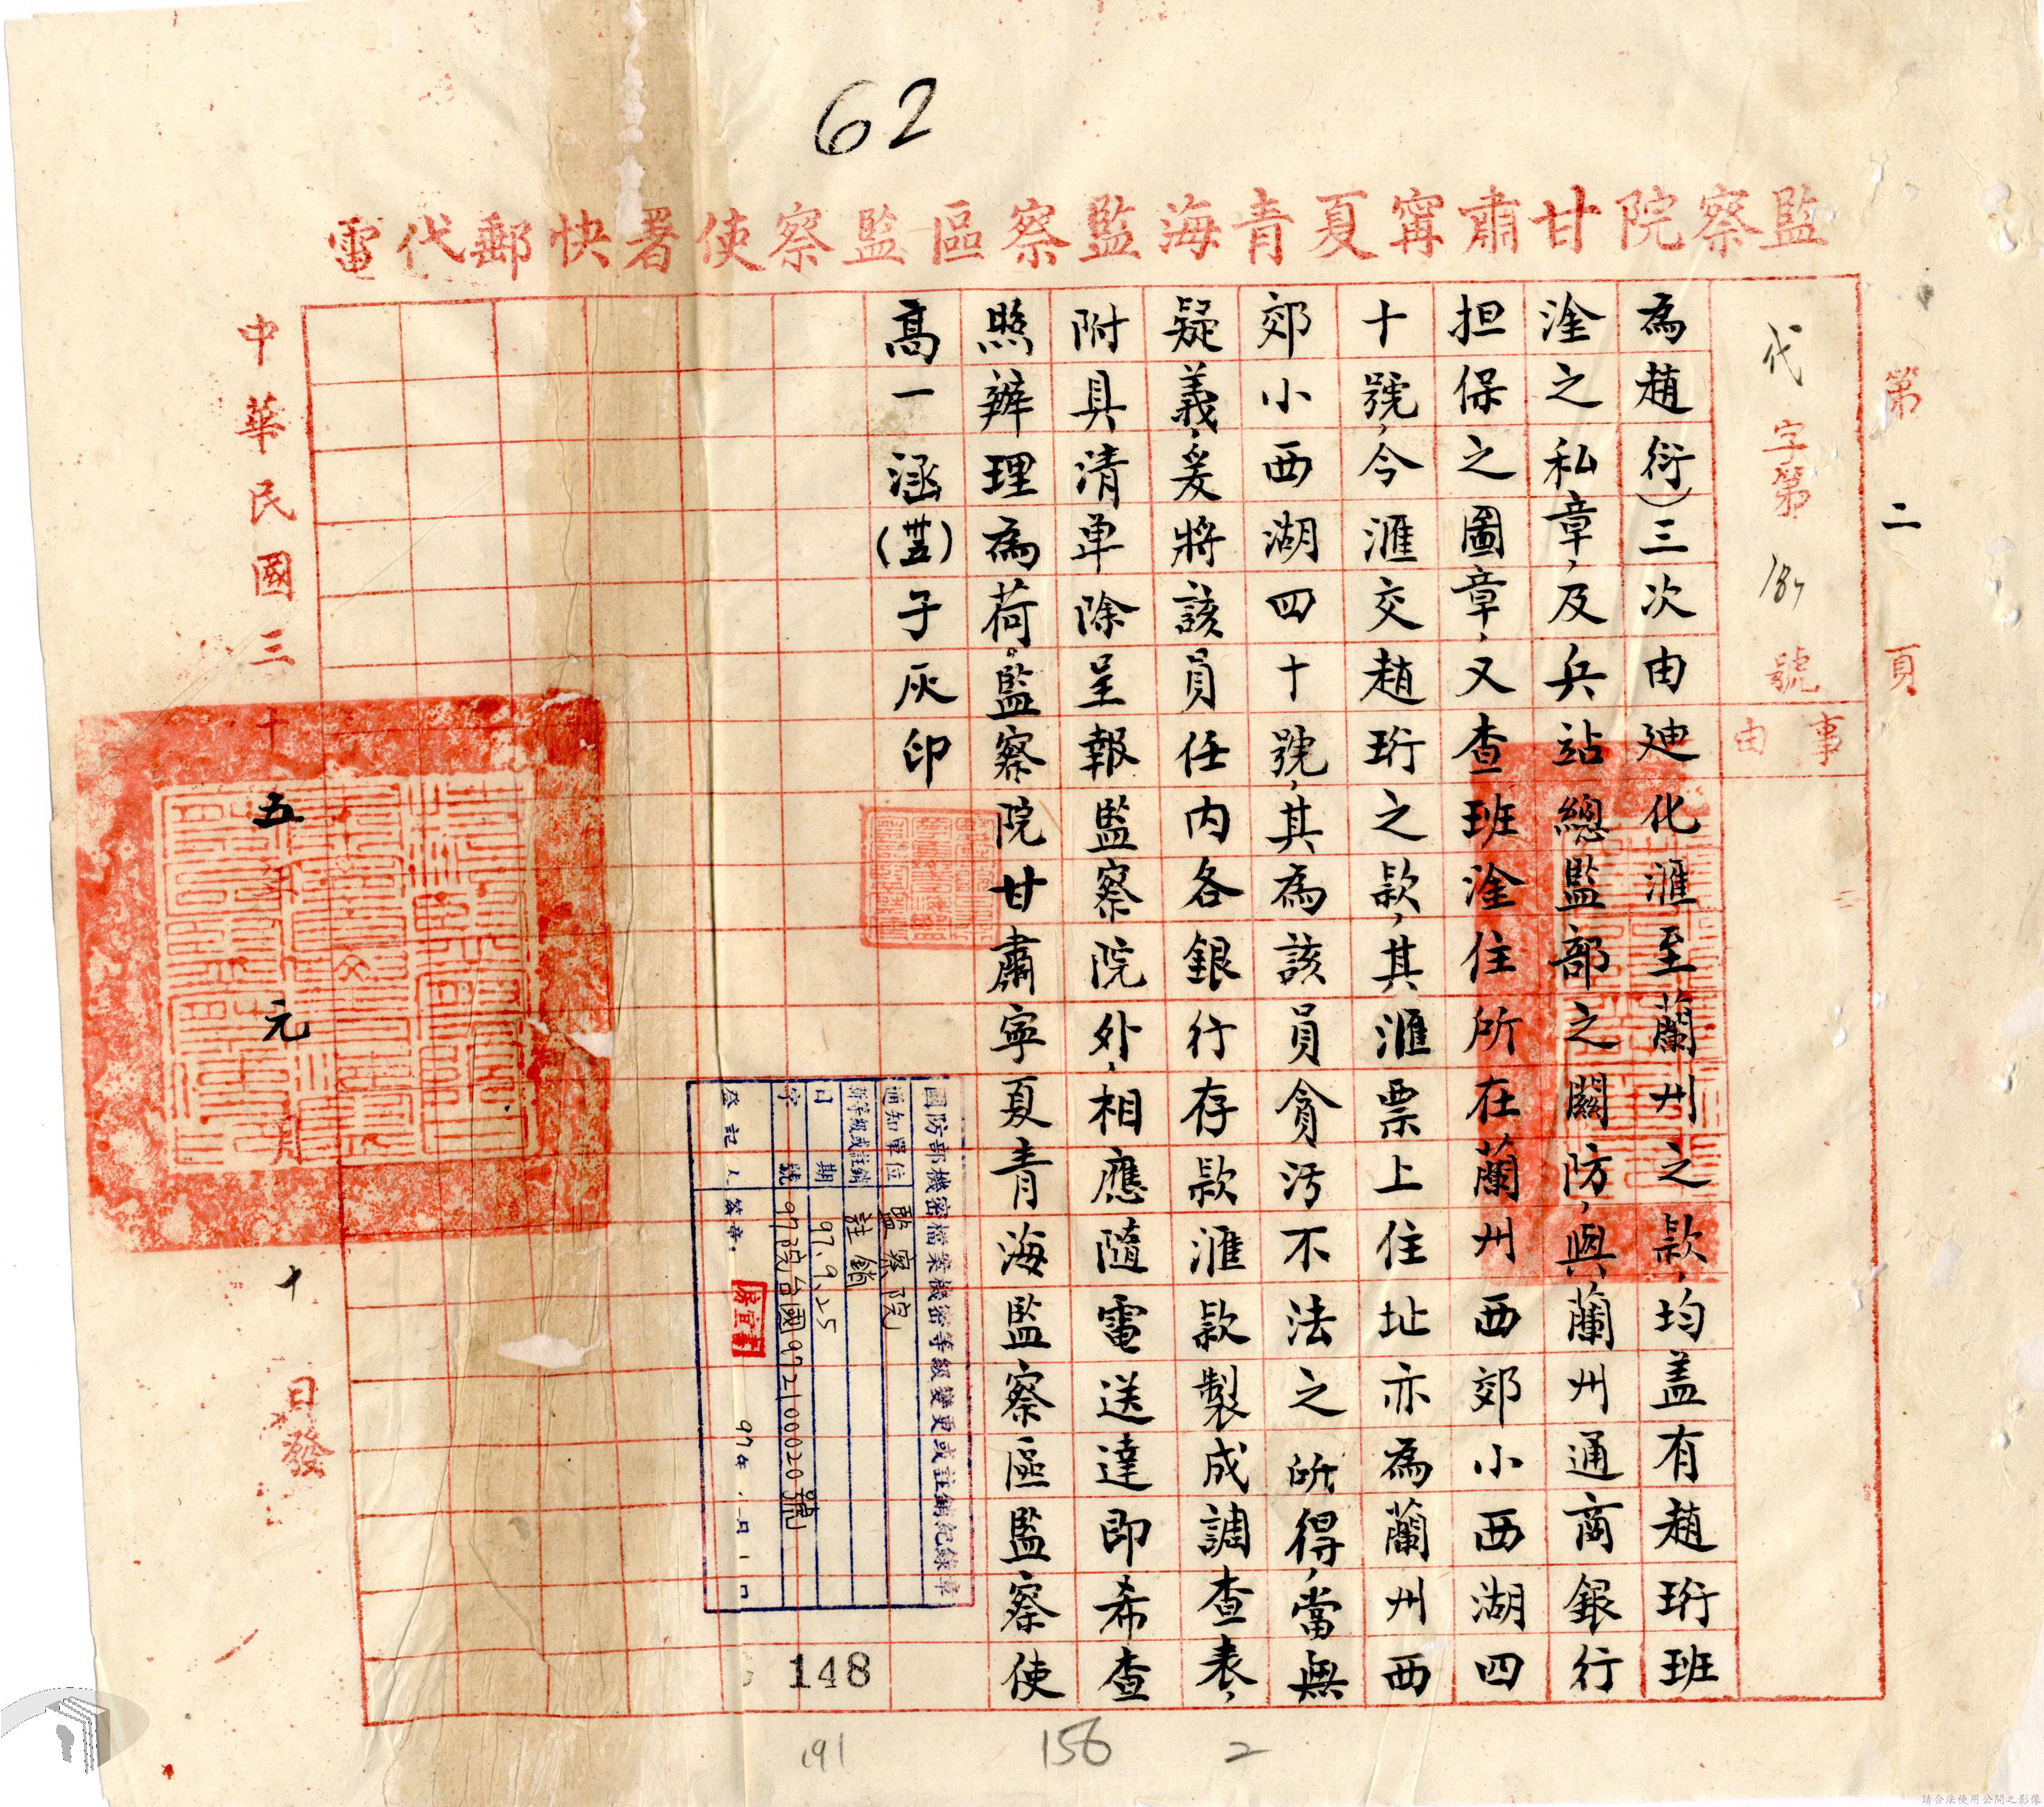 62
監察院甘肅甯夏青海監察區監察使署快郵代電
第二頁
代字第187號
事由
為趙衍)三次由廸化滙至蘭州之款，均盖有趙珩班
淦之私章，及兵站總監部之關防，與蘭州通商銀行
担保之圖章，又查班淦住所在蘭州西郊小西湖四
十號，今滙交趙珩之款，其滙票上住址亦為蘭州西
郊小西湖四十號，其為該員貪污不法之所得，當無
疑義，爰將該員任內各銀行存款滙款製成調查表，
附具清单除呈報監察院外，相應隨電送達即希查
照辦理為荷。監察院甘肅寧夏青海監察區監察使
高一涵(蘭)子灰印
中華民國三十五年元月十日發
國防部機密檔案機密等級變更或註銷紀錄章
通知單位 監察院
新等級或註銷 註銷
日期 97.9.25
字號 97院台國0972100020號
登記人簽章
97年
148
191
156
2
請合法使用公開之影像